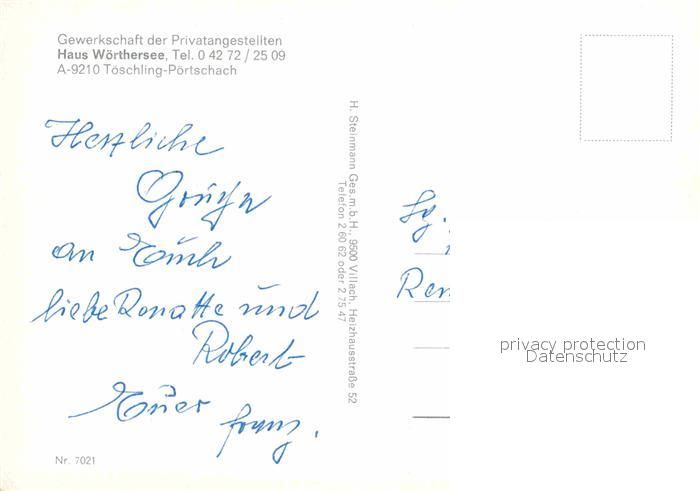 Gewerkschaft der Privatangestellten
Haus Wörthersee, Tel. 0 42 72 / 25 09
A-9210 Töschling-Pörtschach
Herzliche
Grüße
an Euch
liebe Renatte und
Robert
Euer Franz.
Nr. 7021
H. Steinmann Ges.m.b.H., 9500 Villach, Heizhausstraße 52
Telefon 2 60 62 oder 2 75 47
Ren
privacy protection
Datenschutz